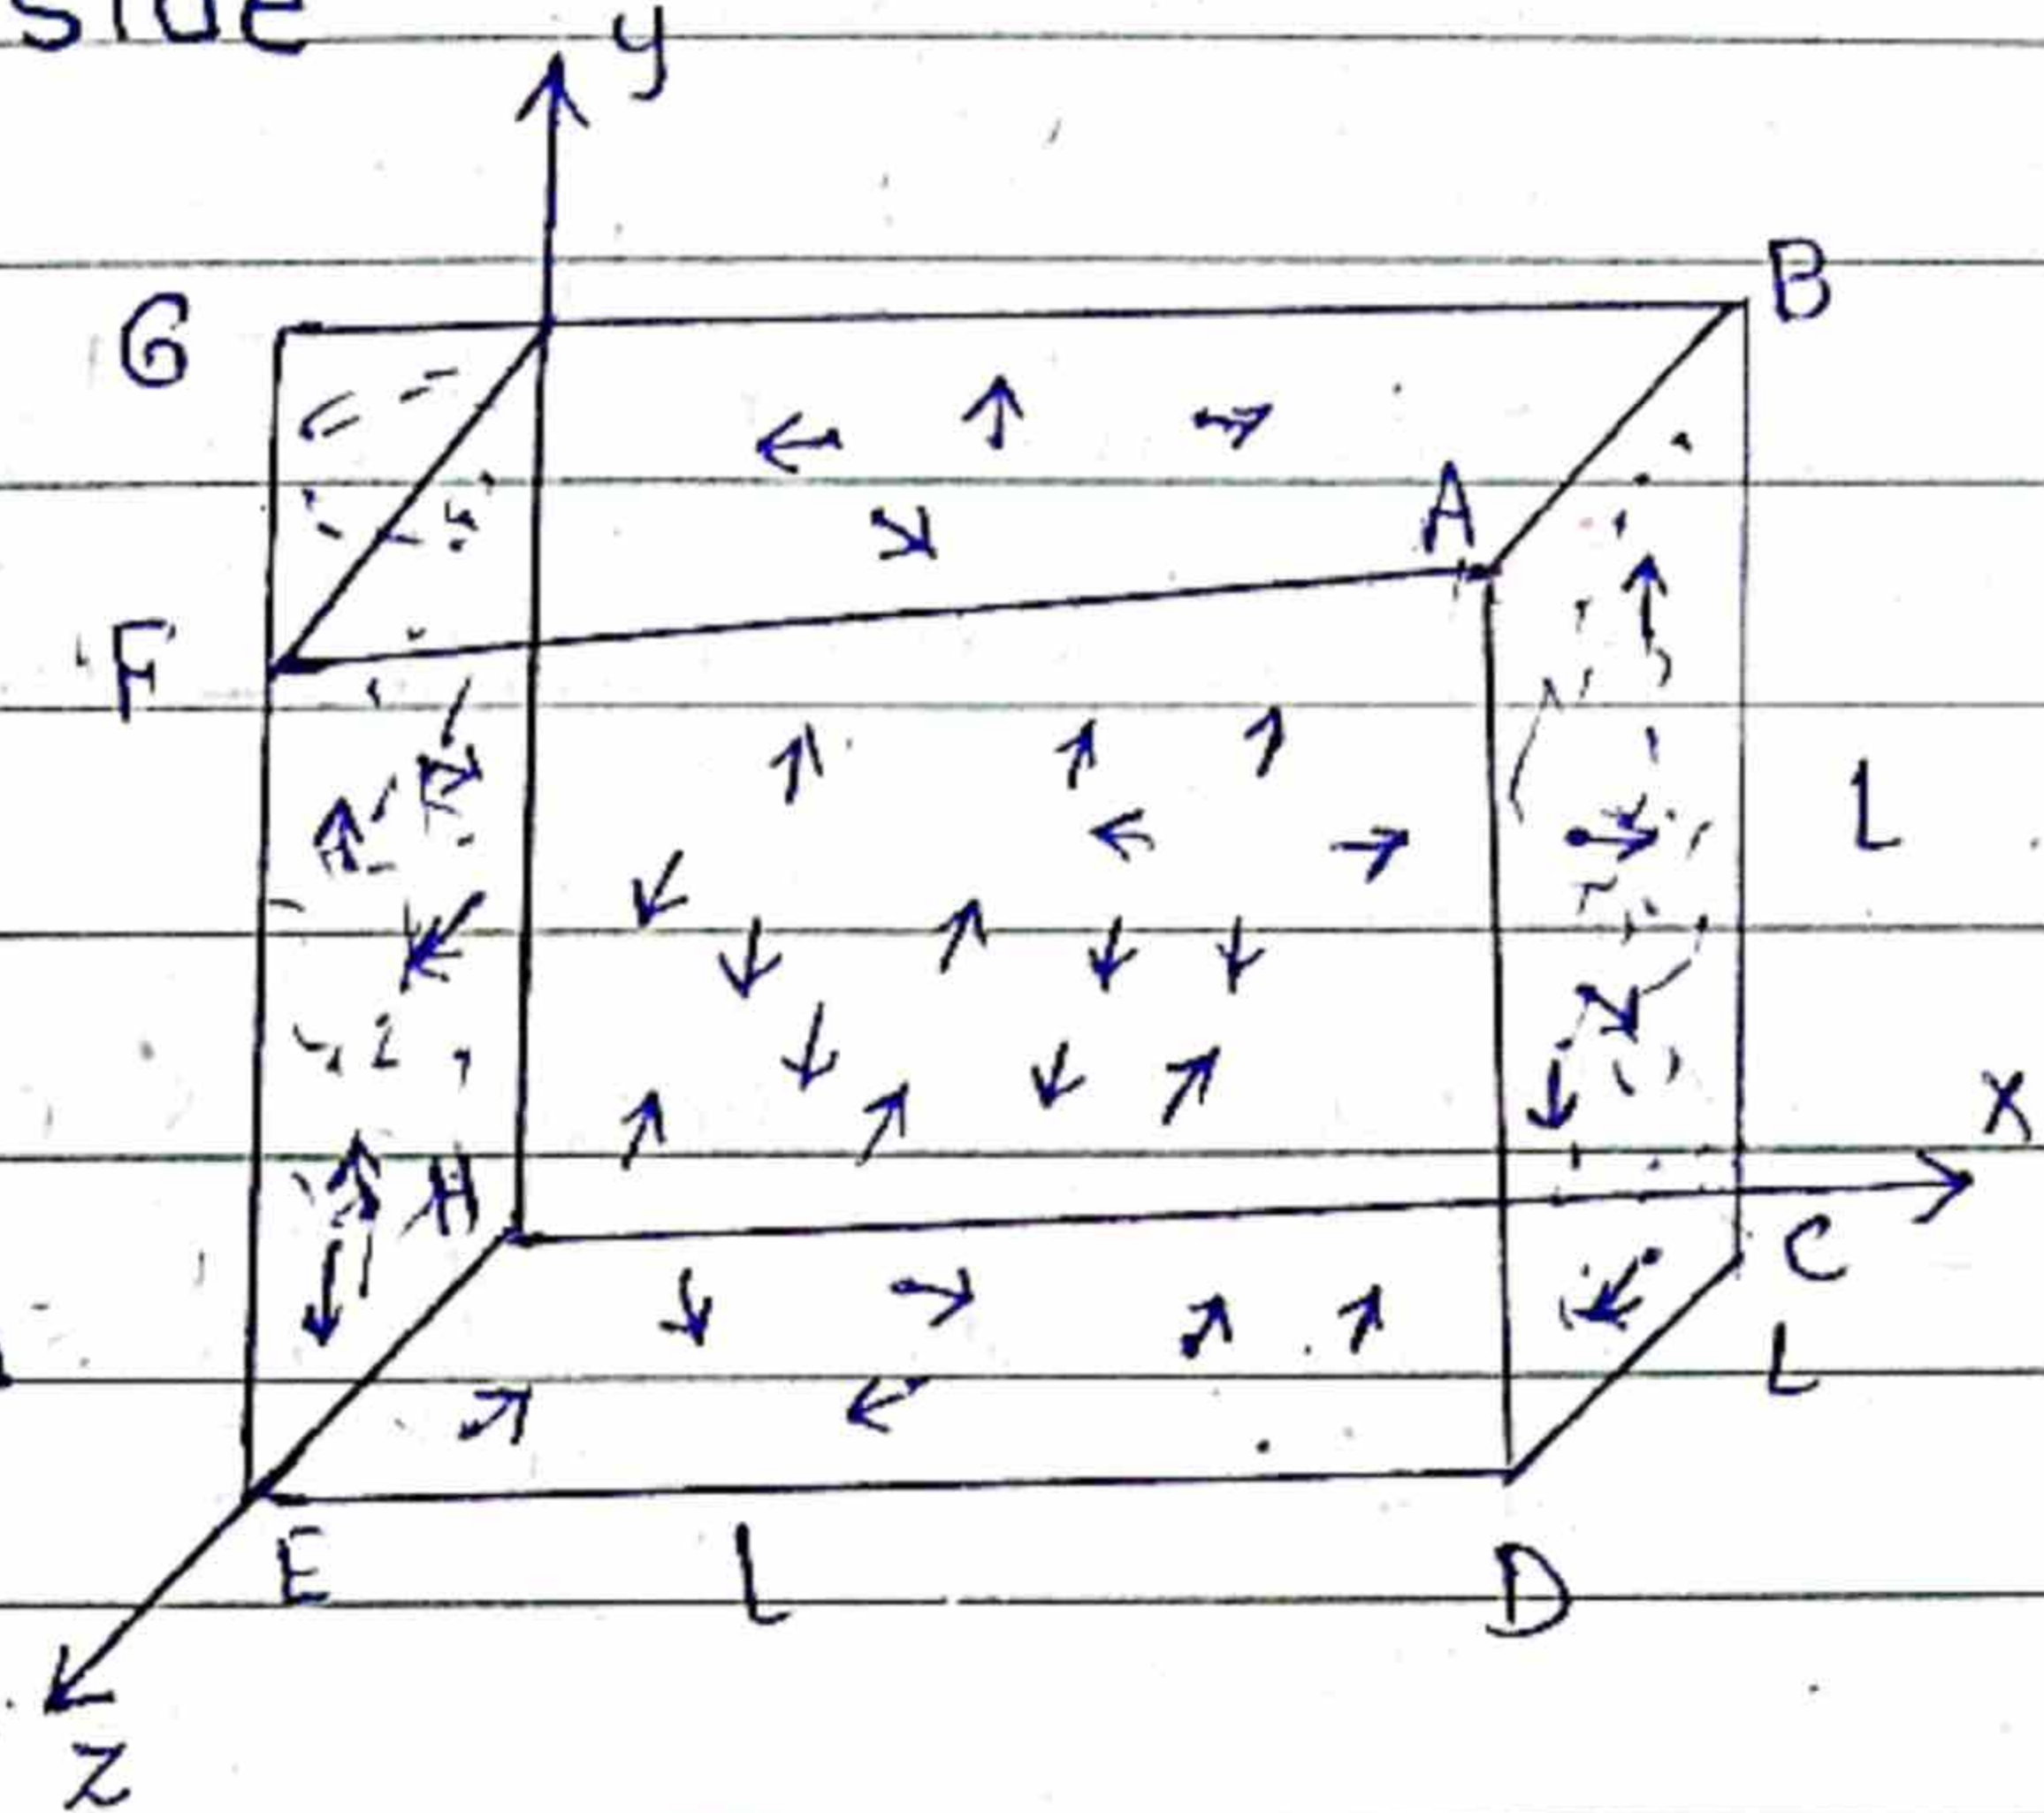 side
y
G
B
A
F
L
H
X
C
L
E
L
D
Z